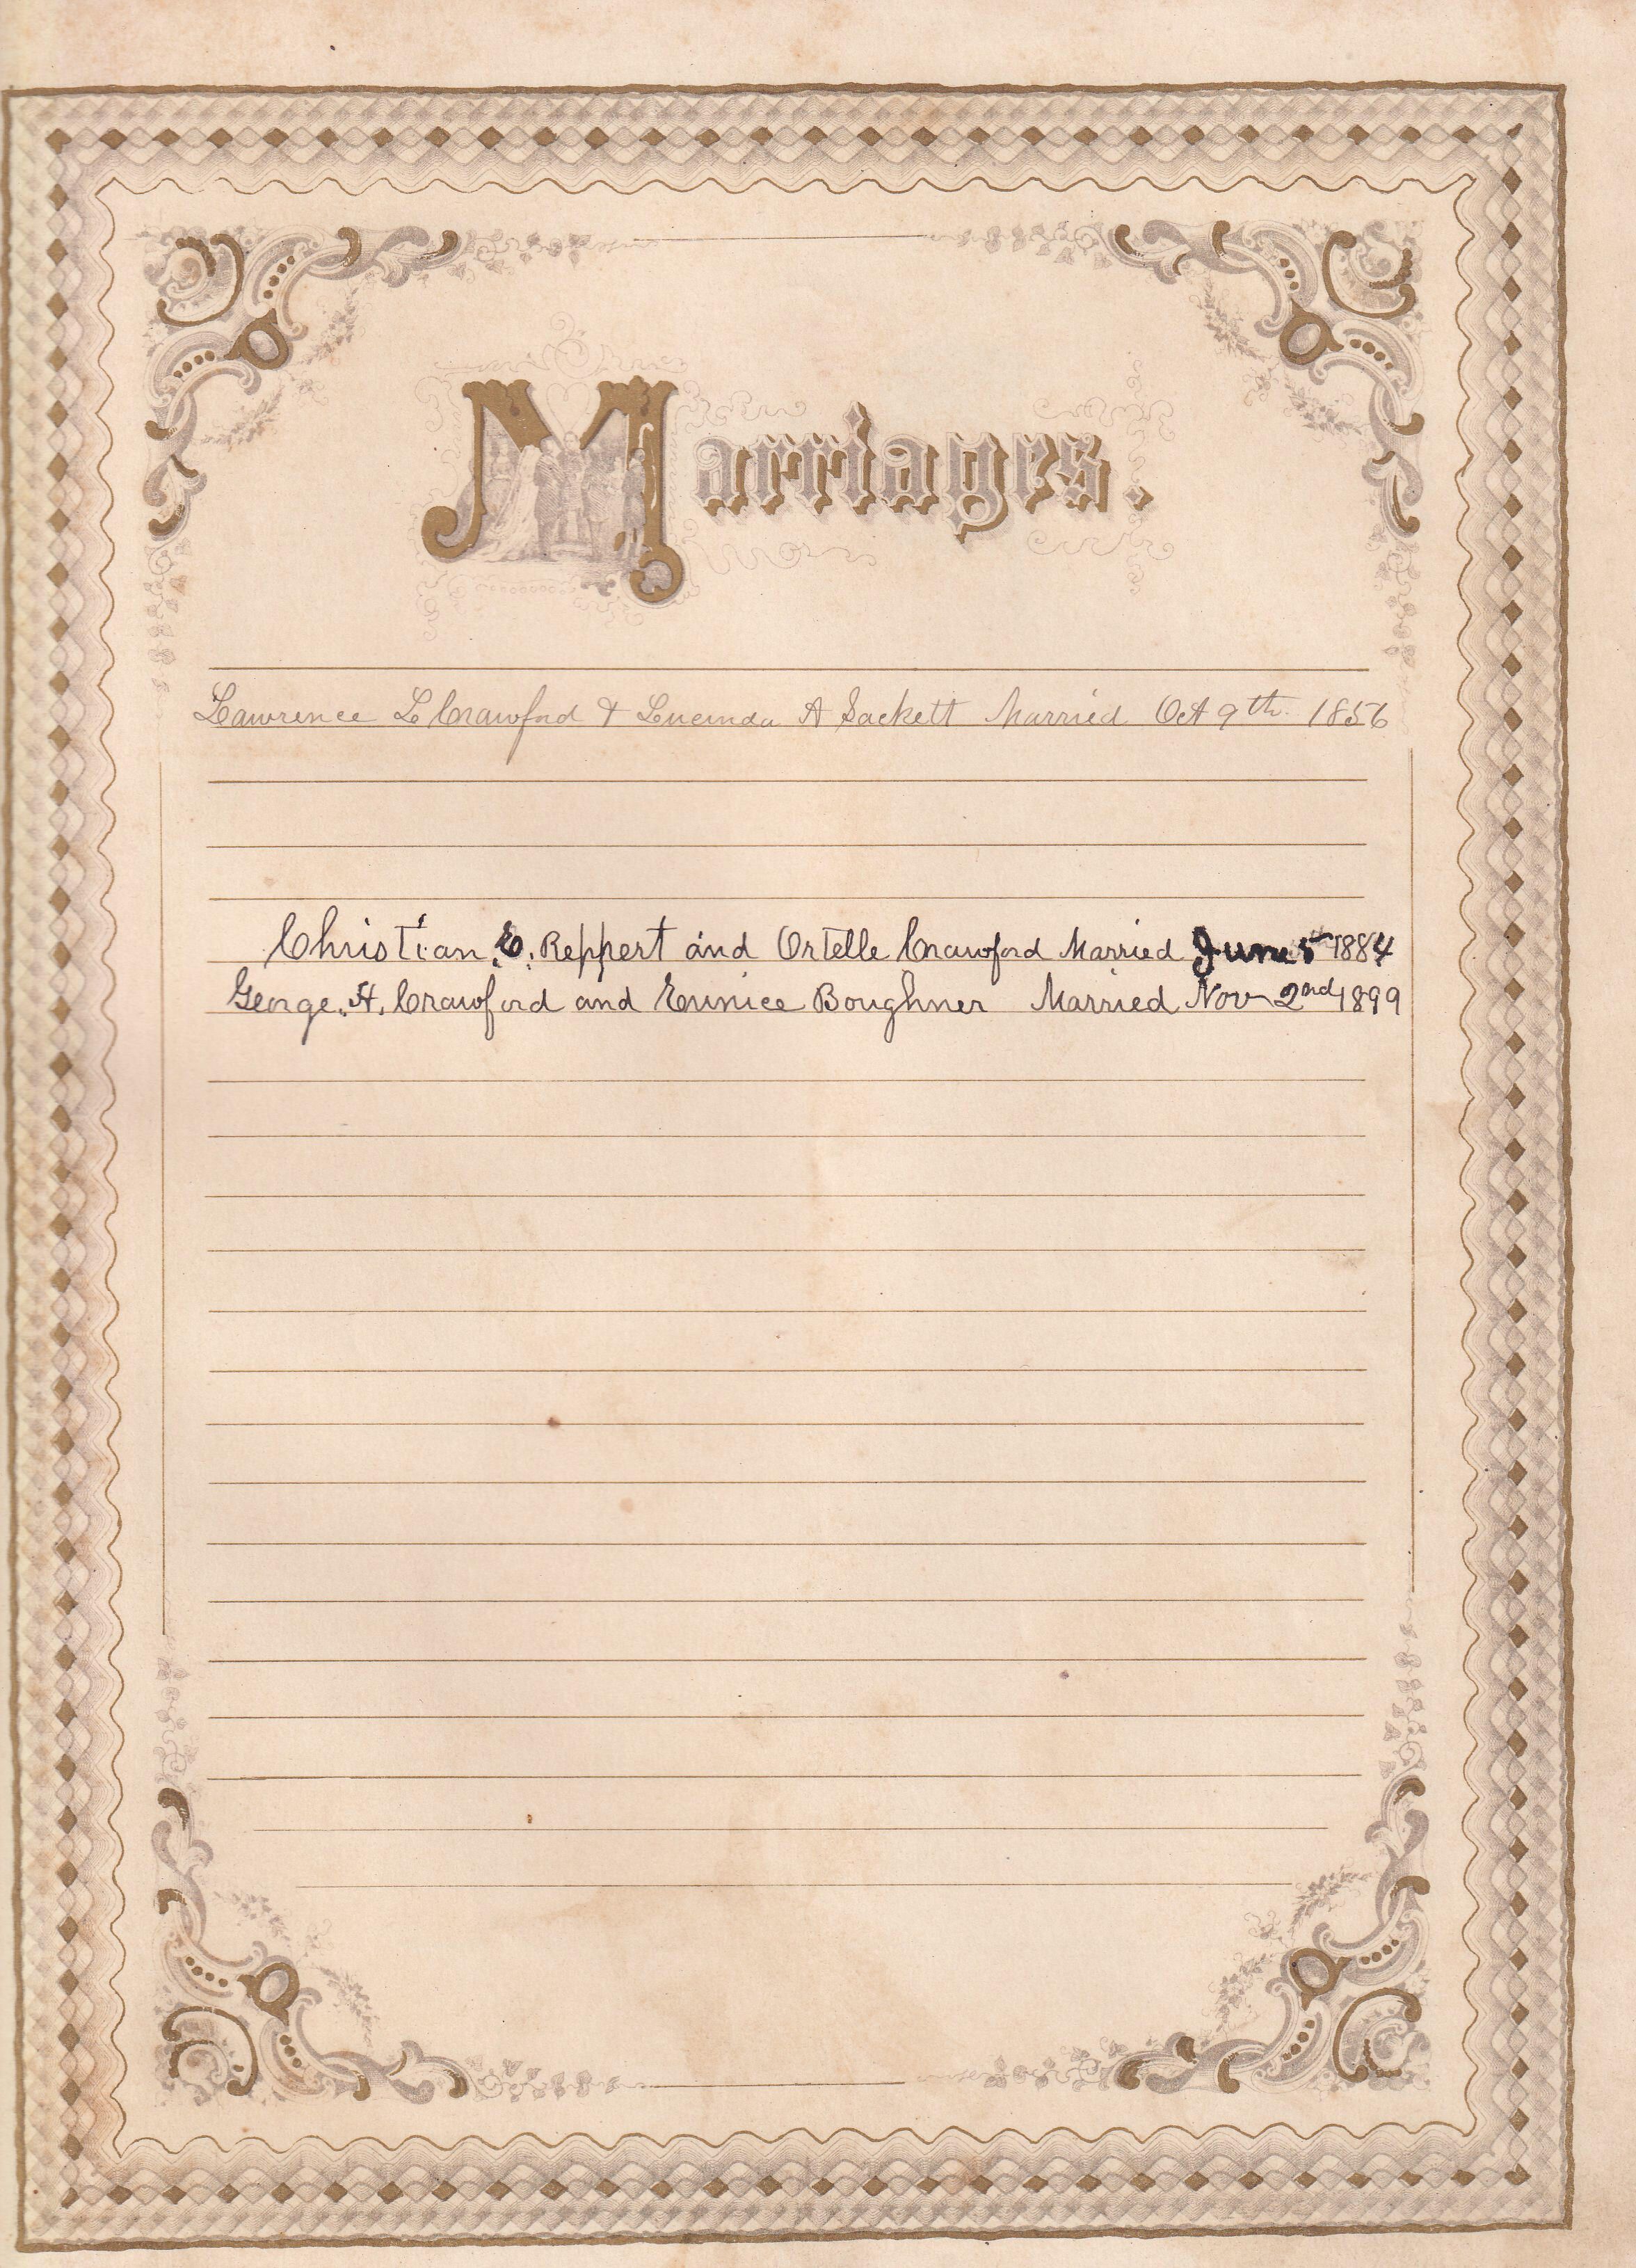 Marriages.
Lawrence L Crawford & Lucinda A Sackett Married Oct 9th. 1856
Christian. E. Reppert and Ortelle Crawford Married June 5th 1884
George. H. Crawford and Eunice Boughner Married Nov 2nd 1899